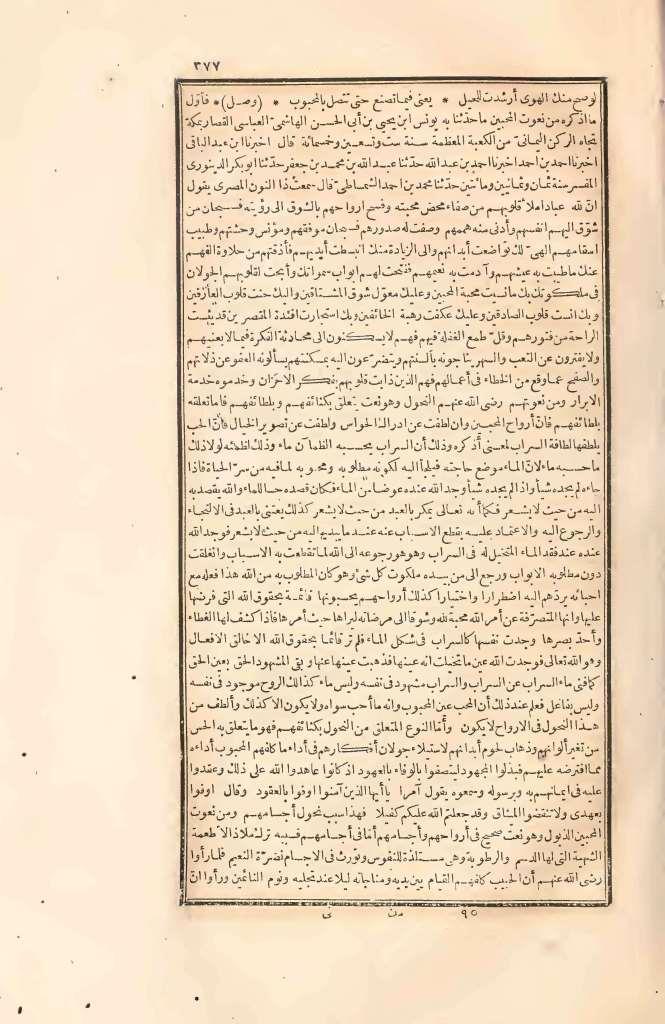 ٣٧٧
لوصح منك الهوى أرشدت للحيل * يعنى فيما تصنع حتى تتصل بالمحبوب * (وصل)* فأول
ما اذكره من نعوت المحبين ما حدثنا به يونس ابن يحيى بن أبى الحسن الهاشمى العباسى القصار بمكة
تجاه الركن اليمانى من الكعبة المعظمة سنة ست وتسعين وخمسمائة قال اخبرنا ابن عبد الباقى
اخبرنا احمد بن احمد اخبرنا احمد بن عبد الله حدثنا عبد الله بن محمد بن جعفر حدثنا ابو بكر الدينورى
المفسر سنة ثمان وثمانين ومائتين حدثنا محمد بن احمد الشمشاطى قال سمعت ذا النون المصرى يقول
ان لله عبادا ملأ قلوبهم من صفاء محض محبته وفسح ارواحهم بالشوق الى رؤيته فسبحان من
شوق اليه انفسهم وأدنى منه هممهم وصفت له صدورهم فسبحان موفقهم ومؤنس وحشتهم وطبيب
اسقامهم الهى لك تواضعت أبدانهم والى الزيادة منك انبسطت أيديهم فأذقتهم من حلاوة الفهم
عنك ما طيبت به عيشهم وأدمت به نعيمهم ففتحت لهم ابواب سمواتك وأبحت لقلوبهم الجولان
فى ملكوتك بك ما نسيت محبة المحبين وعليك معول شوق المشتاقين واليك حنت قلوب العارفين
وبك انست قلوب الصادقين وعليك عكفت رهبة الخائفين وبك استجارت افئدة المقصرين قد يئست
الراحة من فتورهم وقل طمع الغفلة فيهم فهم لا يسكنون الى محادثة الفكرة فيما لا يعنيهم
ولا يفترون عن التعب والسهر يناجونه بألسنتهم ويتضرعون اليه بمسكنتهم يسألونه العفو عن ذلاتهم
والصفح عما وقع من الخطاء فى أعمالهم فهم الذين ذابت قلوبهم بفكر الاحزان وخدموه خدمة
الابرار ومن نعوتهم رضى الله عنهم النحول وهو نعت يتعلق بكثائفهم وبلطائفهم فاما تعلقه
بلطائفهم فان أرواح المحبين وان لطفت عن ادراك الحواس ولطفت عن تصوير الخيال فان الحب
يلطفها لطافة السراب لمعنى أذكره وذلك أن السراب يحسبه الظمآن ماء وذلك لظمئه لولا ذلك
ما حسبه ماء لان الماء موضع حاجته فيلجأ اليه لكونه مطلوبه ومحبوبه لما فيه من سر الحياة فاذا
جاءه لم يجده شيأ واذ لم يجده شيأ وجد الله عنده عوضا من الماء فكان قصده حسا للماء والله يقصد به
اليه من حيث لا يشعر فكما أنه تعالى يمكر بالعبد من حيث لا يشعر كذلك يعتنى بالعبد فى الالتجاء
والرجوع اليه والاعتماد عليه بقطع الاسباب عنه عند ما يبديه اليه من حيث لا يشعر فوجد الله
عنده عند فقد الماء المتخيل له فى السراب وهو هو رجوعه الى الله لما تقطعت به الاسباب وانغلقت
دون مطلوبه الابواب ورجع الى من بيده ملكوت كل شئ وهو كان المطلوب به من الله هذا فعله مع
احبائه يردهم اليه اضطرارا واختيارا كذلك أرواحهم يحسبونها قائمة بحقوق الله التى فرضها
عليها وانها المتصرفة عن أمر الله محبة لله وشوقا الى مرضاته ليراها حيث أمرها فاذا كشف لها الغطاء
وأحد بصرها وجدت نفسها كالسراب فى شكل الماء فلم تر قائما بحقوق الله الا خالق الافعال
وهو الله تعالى فوجدت الله عين ما تخيلت انه عينها فذهبت عينها عنها وبقى المشهود الحق بعين الحق
كما فنى ماء السراب عن السراب والسراب مشهود فى نفسه وليس ماء كذلك الروح موجود فى نفسه
وليس بفاعل فعلم عند ذلك أن المحب عين المحبوب وانه ما أحب سواه ولا يكون الا كذلك وألطف من
هذا النحول فى الارواح لا يكون وأما النوع المتعلق من النحول بكثائفهم فهو ما يتعلق به الحس
من تغير ألوانهم وذهاب لحوم أبدانهم لاستيلاء جولان أفكارهم فى أداء ما كلفهم المحبوب أداءه
مما افترضه عليهم فبذلوا المجهود ليتصفوا بالوفاء بالعهود اذ كانوا عاهدوا الله على ذلك وعقدوا
عليه فى ايمانهم به وبرسوله وسمعوه يقول آمرا يا أيها الذين آمنوا اوفوا بالعقود وقال اوفوا
بعهدى ولا تنقضوا الميثاق وقد جعلتم الله عليكم كفيلا فهذا سبب نحول أجسامهم ومن نعوت
المحبين الذبول وهو نعت صحيح فى أرواحهم وأجسامهم أما فى أجسامهم فسببه ترك ملاذ الاطعمة
الشهية التى لها الدسم والرطوبة وهى مستلذة للنفوس وتورث فى الاجسام نضرة النعيم فلما رأوا
رضى الله عنهم أن الحبيب كلفهم القيام بين يديه ومناجاته ليلا عند تجليه ونوم النائمين ورأوا ان
٩٥ من نى